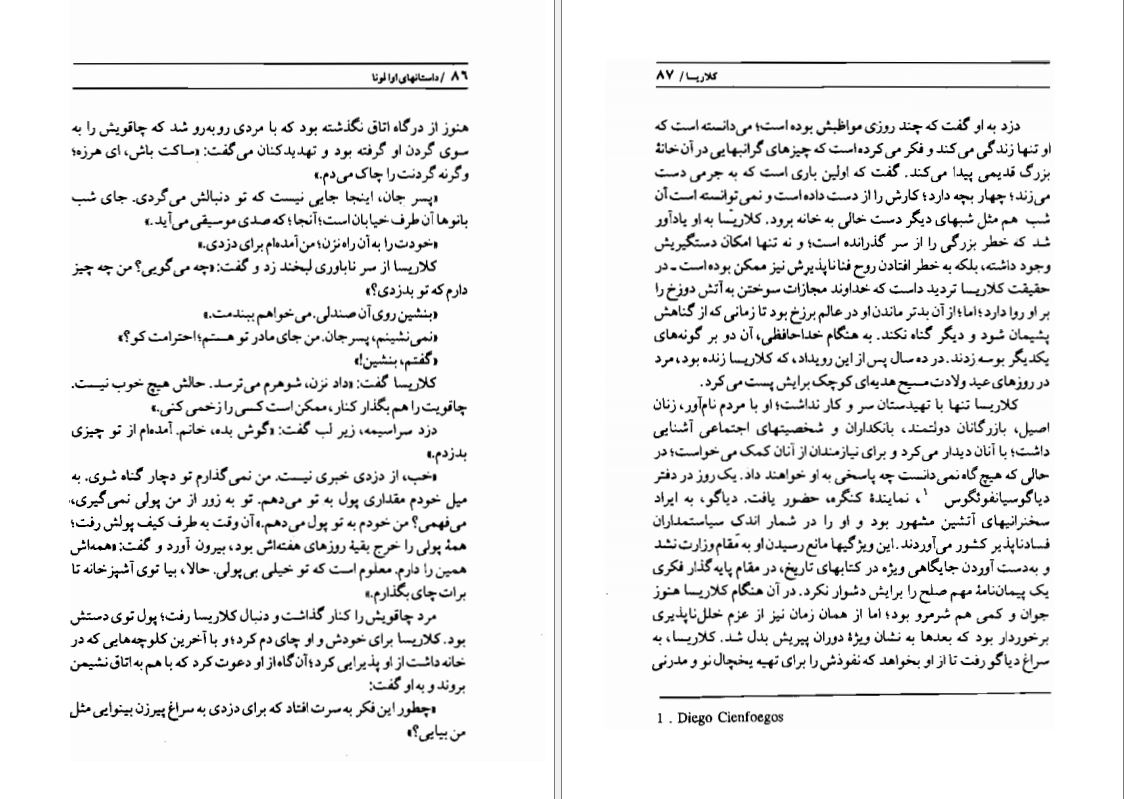 ۸۶ / داستانهای اوا لونا
هنوز از درگاه اتاق نگذشته بود که با مردی روبه‌رو شد که چاقویش را به
سوی گردن او گرفته بود و تهدیدکنان می‌گفت: «ساکت باش، ای هرزه؛
وگرنه گردنت را چاک می‌دم.»
«پسر جان، اینجا جایی نیست که تو دنبالش می‌گردی. جای شب
بانوها آن طرف خیابان است؛ آنجا؛ که صدی موسیقی می‌آید.»
«خودت را به آن راه نزن؛ من آمده‌ام برای دزدی.»
کلاریسا از سر ناباوری لبخند زد و گفت: «چه می‌گویی؟ من چه چیز
دارم که تو بدزدی؟»
«بنشین روی آن صندلی. می‌خواهم ببندمت.»
«نمی‌نشینم، پسر جان. من جای مادر تو هستم؛ احترامت کو؟»
«گفتم، بنشین!»
کلاریسا گفت: «داد نزن، شوهرم می‌ترسد. حالش هیچ خوب نیست.
چاقویت را هم بگذار کنار، ممکن است کسی را زخمی کنی.»
دزد سراسیمه، زیر لب گفت: «گوش بده، خانم. آمده‌ام از تو چیزی
بدزدم.»
«خب، از دزدی خبری نیست. من نمی‌گذارم تو دچار گناه شوی. به
میل خودم مقداری پول به تو می‌دهم. تو به زور از من پولی نمی‌گیری،
می‌فهمی؟ من خودم به تو پول می‌دهم.» آن وقت به طرف کیف پولش رفت؛
همهٔ پولی را خرج بقیهٔ روزهای هفته‌اش بود، بیرون آورد و گفت: «همه‌اش
همین را دارم. معلوم است که تو خیلی بی‌پولی. حالا، بیا توی آشپزخانه تا
برات چای بگذارم.»
مرد چاقویش را کنار گذاشت و دنبال کلاریسا رفت؛ پول توی دستش
بود. کلاریسا برای خودش و او چای دم کرد؛ و با آخرین کلوچه‌هایی که در
خانه داشت از او پذیرایی کرد؛ آن گاه از او دعوت کرد که با هم به اتاق نشیمن
بروند و به او گفت:
«چطور این فکر به سرت افتاد که برای دزدی به سراغ پیرزن بینوایی مثل
من بیایی؟»
کلاریسا / ۸۷
دزد به او گفت که چند روزی مواظبش بوده است؛ می‌دانسته است که
او تنها زندگی می‌کند و فکر می‌کرده است که چیزهای گرانبهایی در آن خانهٔ
بزرگ قدیمی پیدا می‌کند. گفت که اولین باری است که به جرمی دست
می‌زند؛ چهار بچه دارد؛ کارش را از دست داده است و نمی‌توانسته است آن
شب هم مثل شبهای دیگر دست خالی به خانه برود. کلاریسا به او یادآور
شد که خطر بزرگی را از سر گذرانده است؛ و نه تنها امکان دستگیریش
وجود داشته، بلکه به خطر افتادن روح فناناپذیرش نیز ممکن بوده است ـ در
حقیقت کلاریسا تردید داست که خداوند مجازات سوختن به آتش دوزخ را
بر او روا دارد؛ اما؛ از آن بدتر ماندن او در عالم برزخ بود تا زمانی که از گناهش
پشیمان شود و دیگر گناه نکند. به هنگام خداحافظی، آن دو بر گونه‌های
یکدیگر بوسه زدند. در ده سال پس از این رویداد، که کلاریسا زنده بود، مرد
در روزهای عید ولادت مسیح هدیه‌ای کوچک برایش پست می‌کرد.
کلاریسا تنها با تهیدستان سر و کار نداشت؛ او با مردم نام‌آور، زنان
اصیل، بازرگانان دولتمند، بانکداران و شخصیتهای اجتماعی آشنایی
داشت؛ با آنان دیدار می‌کرد و برای نیازمندان از آنان کمک می‌خواست؛ در
حالی که هیچ گاه نمی‌دانست چه پاسخی به او خواهند داد. یک روز در دفتر
دیاگوسیانفوئگوس ۱، نمایندهٔ کنگره، حضور یافت. دیاگو، به ایراد
سخنرانیهای آتشین مشهور بود و او را در شمار اندک سیاستمداران
فسادناپذیر کشور می‌آوردند. این ویژگیها مانع رسیدن او به مقام وزارت نشد
و به‌دست آوردن جایگاهی ویژه در کتابهای تاریخ، در مقام پایه‌گذار فکری
یک پیمان‌نامهٔ مهم صلح را برایش دشوار نکرد. در آن هنگام کلاریسا هنوز
جوان و کمی هم شرمرو بود؛ اما از همان زمان نیز از عزم خلل‌ناپذیری
برخوردار بود که بعدها به نشان ویژهٔ دوران پیریش بدل شد. کلاریسا، به
سراغ دیاگو رفت تا از او بخواهد که نفوذش را برای تهیه یخچال نو و مدرنی
1 . Diego Cienfoegos